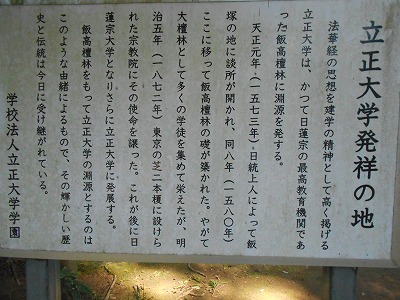 立正大学発祥の地
法華経の思想を建学の精神として高く掲げる
立正大学は、かつて日蓮宗の最高教育機関であ
った飯高檀林に淵源を発する。
天正元年(一五七三年)日統上人によって飯
塚の地に談所が開かれ、同八年(一五八〇年)
ここに移って飯高檀林の礎が築かれた。やがて
大檀林として多くの学徒を集めて栄えたが、明
治五年(一八七二年)東京の芝二本榎に設けら
れた宗教院にその使命を譲った。これが後に日
蓮宗大学となりさらに立正大学に発展する。
飯高檀林をもって立正大学の淵源とするのは
このような由緒によるもので、その輝かしい歴
史と伝統は今日に受け継がれている。
学校法人立正大学学園